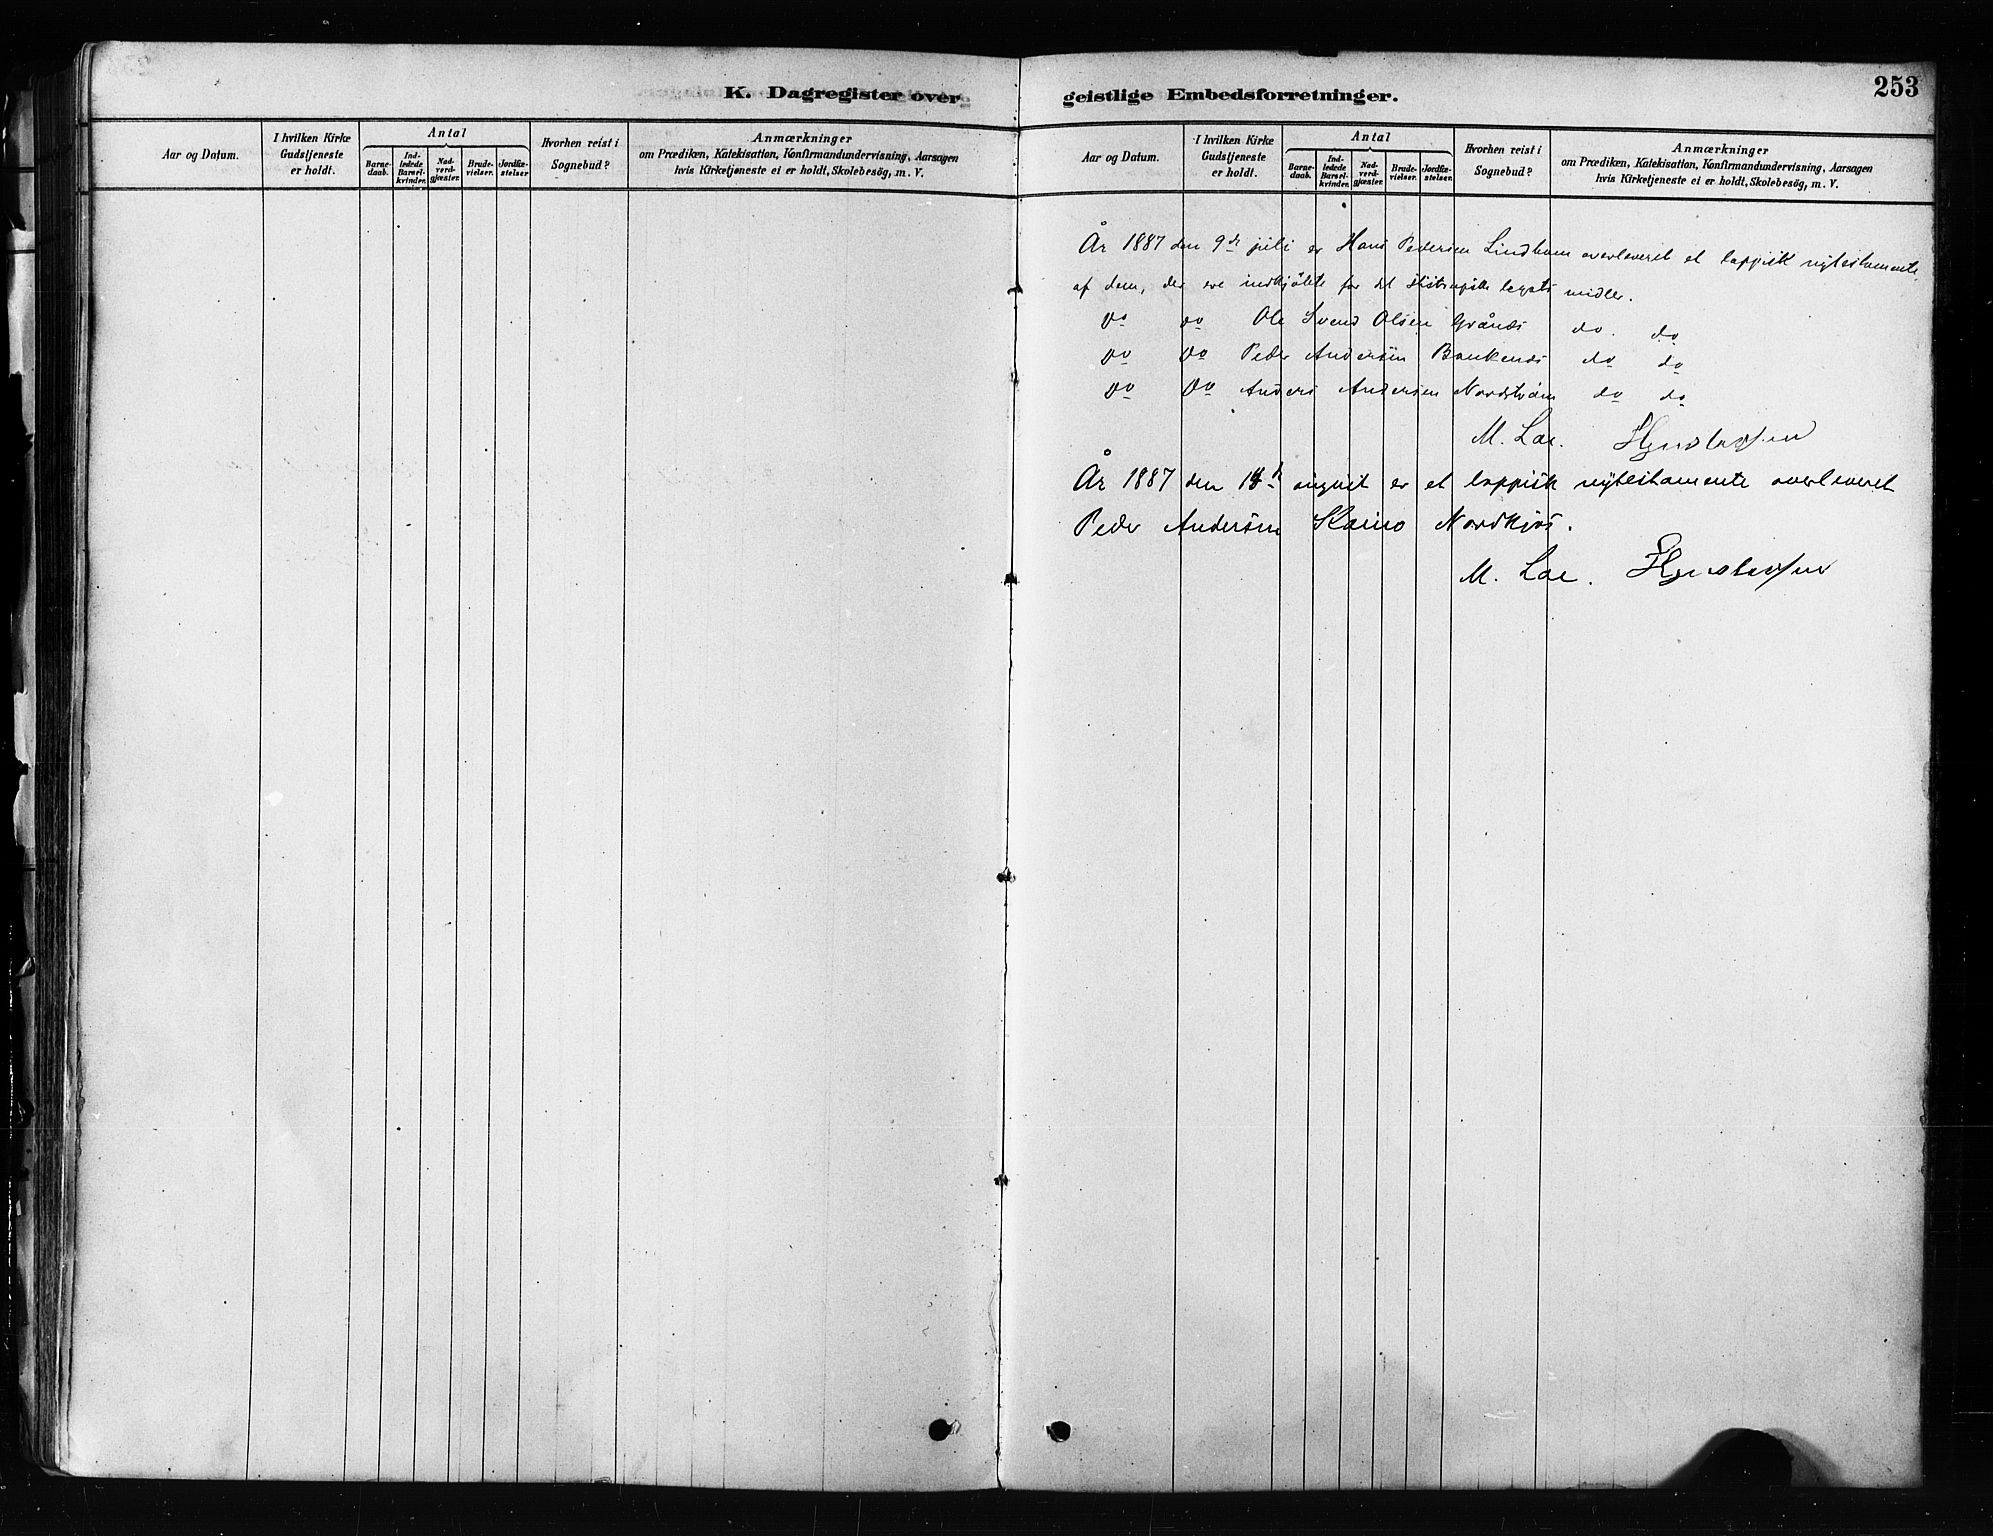 K. Dagregister over
Aar og Datum.
I hvilken Kirke
Gudstjeneste
er holdt.
Antal
Barne-
daab.
Ind-
ledede
Barsel-
kvinder.
Nad-
verd-
gjæster.
Brude-
vielser.
Jordfæ-
stelser
Hvorhen reist i
Sognebud?
Anmærkninger
om Prædiken, Katekisation, Konfirmandundervisning, Aarsagen
hvis Kirketjeneste ei er holdt, Skolebesög, m. V.
geistlige Embedsforretninger.
253
Aar og Datum.
I hvilken Kirke
Gudstjeneste
er holdt.
Antal
Barne-
daab.
Ind-
ledede
Barsel-
kvinder.
Nad-
verd-
gjæster.
Brude-
vielser.
Jordfæ-
stelser.
Hvorhen reist i
Sognebud?
Anmærkninger
om Prædiken, Katekisation, Konfirmandundervisning, Aarsagen
hvis Kirketjeneste ei er holdt, Skolebesög, m. V.
År 1887 den 9de juli er Hans Pedersen overleveret et lappisk nytestamente
af dem, der ere indkjöbte for det legats midler.
do do Ole Svend Olsen do. do
do do Peder Andersen do do
do do Anders Andersen do do
M. Lae.
År 1887 den august er et lappisk nytestamente overleveret
Peder Andersen Nordkjos.
M. Lae.